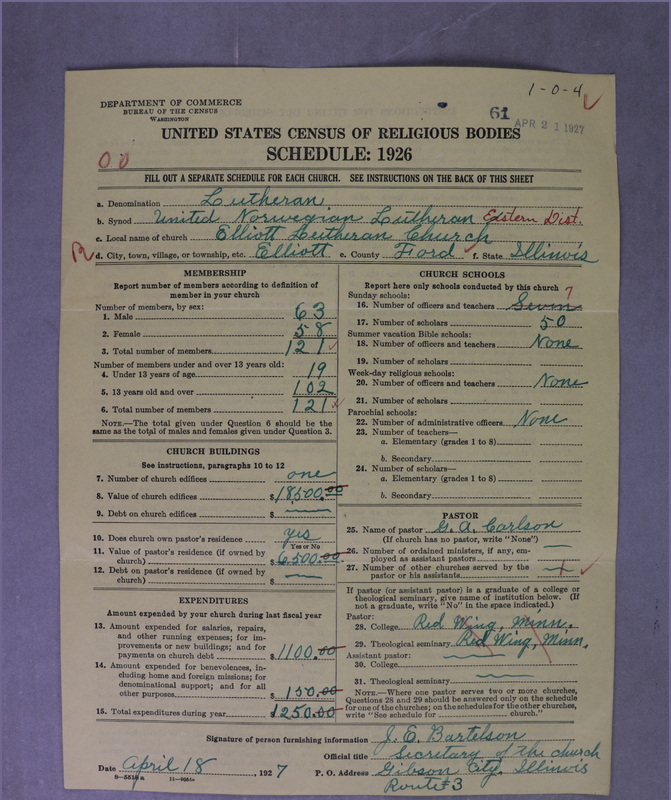 1-0-4
DEPARTMENT OF COMMERCE
BUREAU OF THE CENSUS
WASHINGTON
61
APR 21 1927
UNITED STATES CENSUS OF RELIGIOUS BODIES
SCHEDULE: 1926
00
FILL OUT A SEPARATE SCHEDULE FOR EACH CHURCH. SEE INSTRUCTIONS ON THE BACK OF THIS SHEET
a. Denomination Lutheran
b. Synod United Norwegian Lutheran Eastern Dist.
c. Local name of church Elliott Lutheran Church
R d. City, town, village, or township, etc. Elliott e. County Ford f. State Illinois
MEMBERSHIP
Report number of members according to definition of
member in your church
Number of members, by sex:
1. Male 63
2. Female 58
3. Total number of members 121
Number of members under and over 13 years old:
4. Under 13 years of age 19
5. 13 years old and over 102
6. Total number of members 121
NOTE.—The total given under Question 6 should be the
same as the total of males and females given under Question 3.
CHURCH BUILDINGS
See instructions, paragraphs 10 to 12
7. Number of church edifices one
8. Value of church edifices $18,500.00
9. Debt on church edifices $
10. Does church own pastor's residence? yes
Yes or No
11. Value of pastor's residence (if owned by
church) $6,500.00
12. Debt on pastor's residence (if owned by
church) $
EXPENDITURES
Amount expended by your church during last fiscal year
13. Amount expended for salaries, repairs,
and other running expenses; for im-
provements or new buildings; and for
payments on church debt $1100.00
14. Amount expended for benevolences, in-
cluding home and foreign missions; for
denominational support; and for all
other purposes $150.00
15. Total expenditures during year $1250.00
CHURCH SCHOOLS
Report here only schools conducted by this church
Sunday schools: 7
16. Number of officers and teachers Seven
17. Number of scholars 50
Summer vacation Bible schools:
18. Number of officers and teachers None
19. Number of scholars
Week-day religious schools:
20. Number of officers and teachers None
21. Number of scholars
Parochial schools:
22. Number of administrative officers None
23. Number of teachers—
a. Elementary (grades 1 to 8)
b. Secondary
24. Number of scholars—
a. Elementary (grades 1 to 8)
b. Secondary
PASTOR
25. Name of pastor G. A. Carlson
(If church has no pastor, write "None")
26. Number of ordained ministers, if any, em-
ployed as assistant pastors
27. Number of other churches served by the
pastor or his assistants
If pastor (or assistant pastor) is a graduate of a college or
theological seminary, give name of institution below. (If
not a graduate, write "No" in the space indicated.)
Pastor:
28. College Red Wing, Minn.
29. Theological seminary Red Wing, Minn.
Assistant pastor:
30. College
31. Theological seminary
NOTE.—Where one pastor serves two or more churches,
Questions 28 and 29 should be answered only on the schedule
for one of the churches; on the schedules for the other churches,
write "See schedule for church."
Signature of person furnishing information J. E. Bartelson
Official title Secretary of the church
Date April 18, 1927 P. O. Address Gibson City, Illinois
Route #3